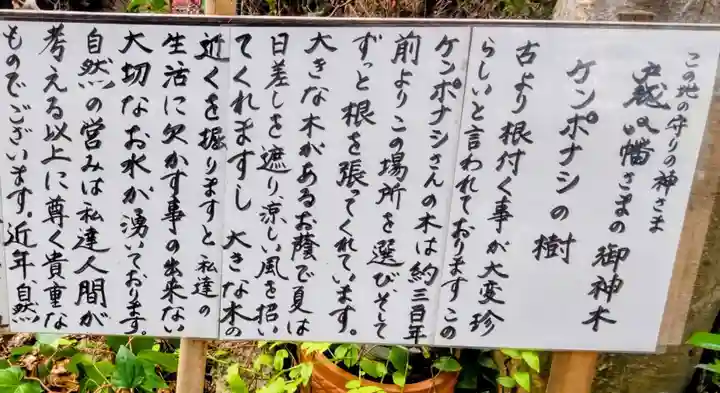 この地の守りの神さま
戸越八幡さまの御神木
ケンポナシの樹
古より根付く事が大変珍
らしいと言われております この
ケンポナシさんの木は約三百年
前よりこの場所を選びそして
ずっと根を張ってくれています。
大きな木があるお蔭で夏は
日差しを遮り、涼しい風を招い
てくれますし 大きな木の
近くを掘りますと私達の
生活に欠かす事の出来ない
大切なお水が湧いております。
自然の営みは私達人間が
考える以上に尊く貴重な
ものでございます。近年、自然